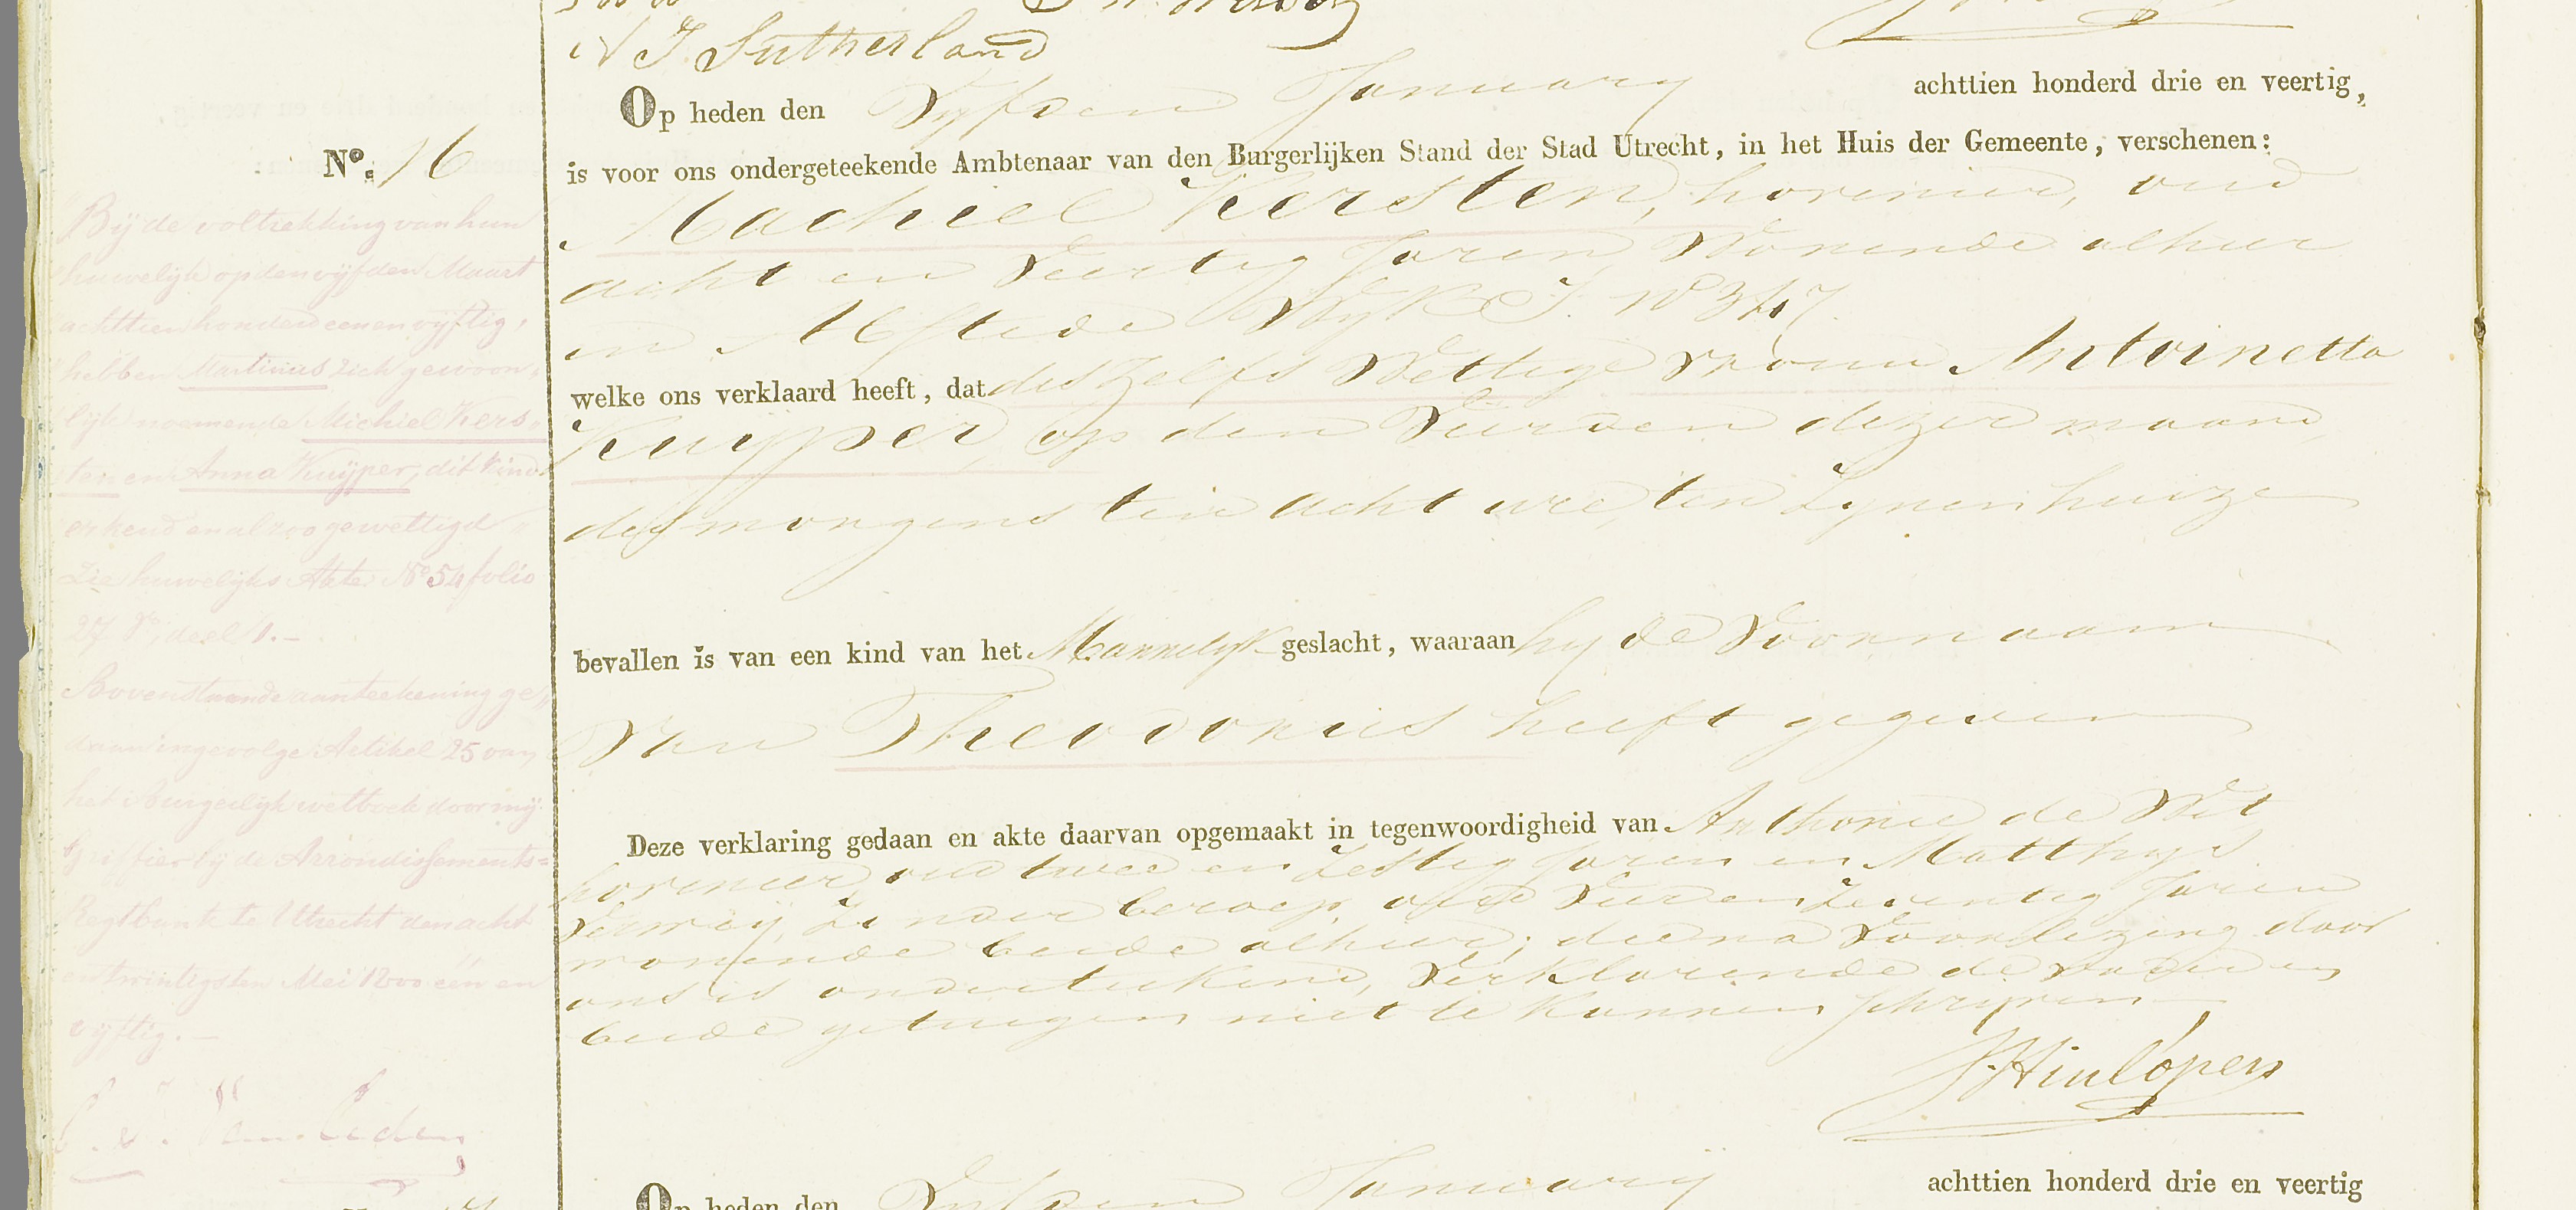 N J Sutherland
Op heden den Vyfden January achttien honderd drie en veertig,
No. 16
is voor ons ondergeteekende Ambtenaar van den Burgerlijken Stand der Stad Utrecht, in het Huis der Gemeente, verschenen:
Machiel Kersten, hovenier, oud
acht en Veertig Jaren, Wonende alhier
in Abstede Wyk I. No 347.
welke ons verklaard heeft, dat deszelfs Wettige vrouw Antoinetta
Kuyper, op den Vierden dezer maand,
des morgens ten acht ure, ten Zynen huize
bevallen is van een kind van het Mannelyk geslacht, waaraan hy de Voornaam
Van Theodorus heeft gegeven
Deze verklaring gedaan en akte daarvan opgemaakt in tegenwoordigheid van Anthonie de Wit
hovenier, oud twee en Zestig Jaren en Matthys
Verwey, Zonder beroep, oud Vier en Zeventig Jaren
wonende beide alhier; die na Voorlezing door
ons is onderteekend, Verklarende de vader en
beide getuigen niet te kunnen schryven
J. Hinlopen
Bij de voltrekking van hun
huwelijk op den vijfden Maart
achttien honderd een en vijftig,
hebben Martinus zich gewoon-
lijk noemende Michiel Kers-
ten en Anna Kuijper, dit kind
erkend en alzoo gewettigd
Zie huwelijks Akte No 54 folio
27 vo, deel 1.-
Bovenstaande aanteekening ge-
daan ingevolge Artikel 25 van
het Burgerlijk wetboek door mij
Griffier bij de Arrondissements-
Regtbank te Utrecht den acht
en twintigsten Mei 1800 één en
vijftig.-
Op heden den Vyfden January achttien honderd drie en veertig